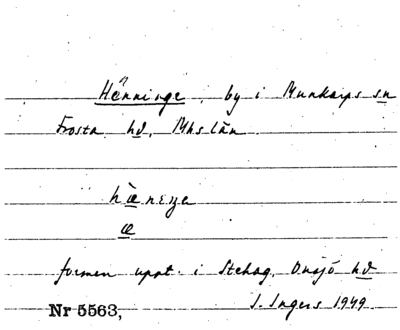 Hänninge, by i Munkarps sn
Frosta hd, Mhs län
hæneŋe
æ
formen uppt. i Stehag, Onsjö hd
I. Ingers 1949
Nr 5563,